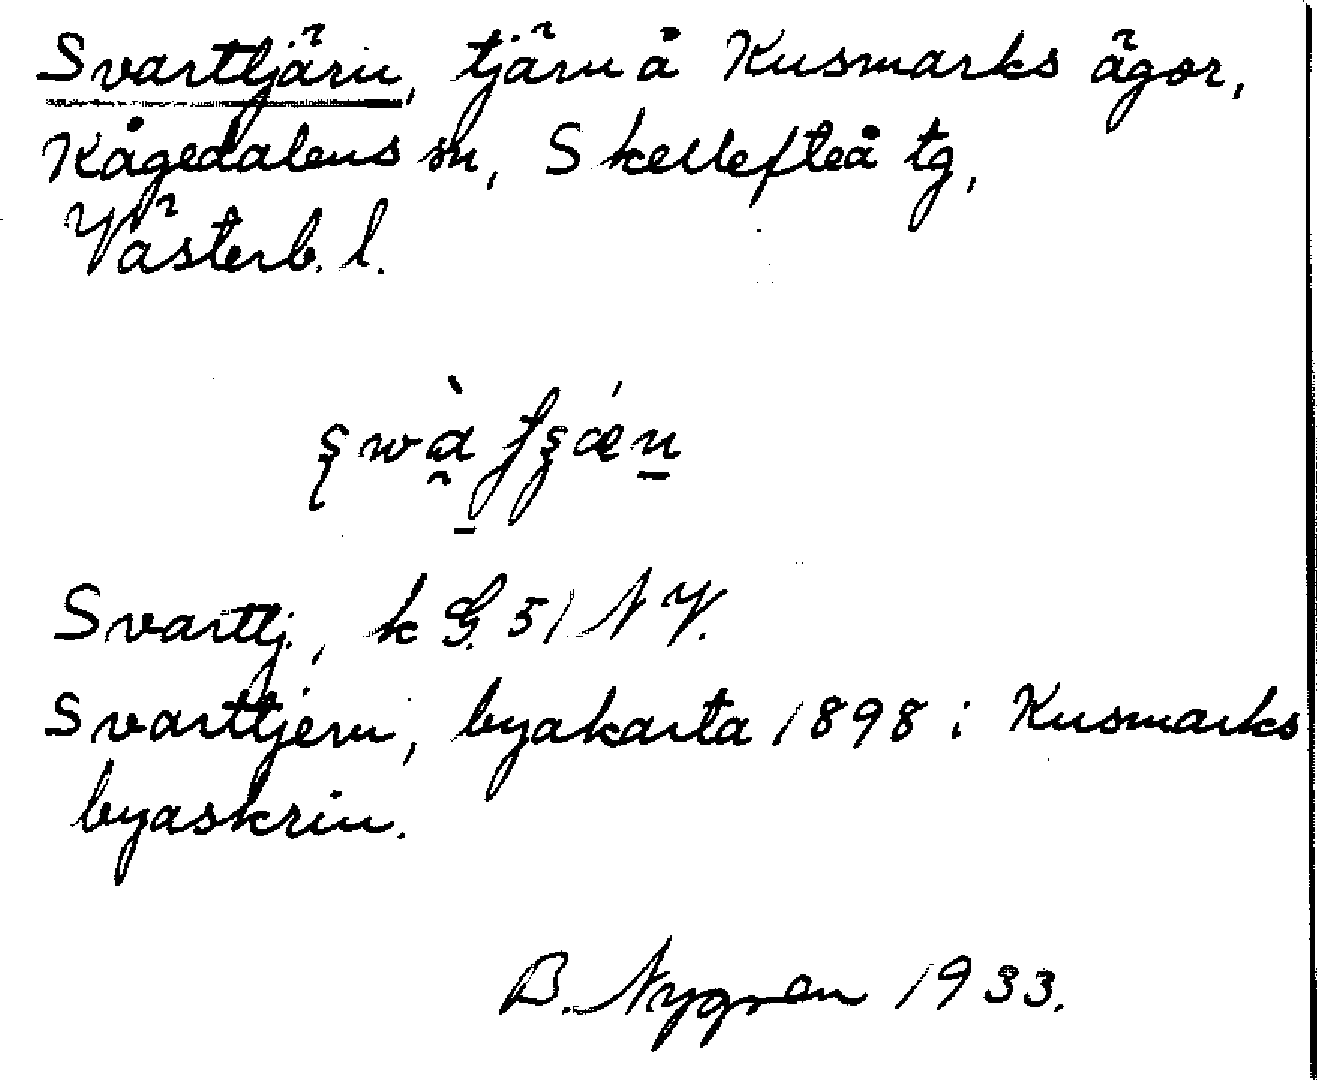 Svarttjärn, tjärn å Kusmarks ägor,
Kågedalens sn, Skellefteå tg,
Västerb. l.
Svarttj., k G. 51 NV.
Svarttjern, byakarta 1898 i Kusmarks
byaskrin.
B. Nygren 1933.